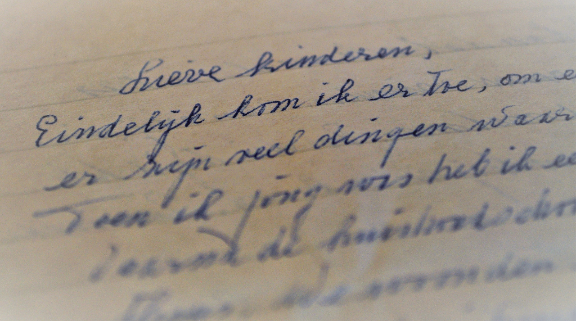 Lieve kinderen,
Eindelijk kom ik er toe, om e
er zijn veel dingen waar
Toen ik jong was heb ik ee
daarna de huishoudscho